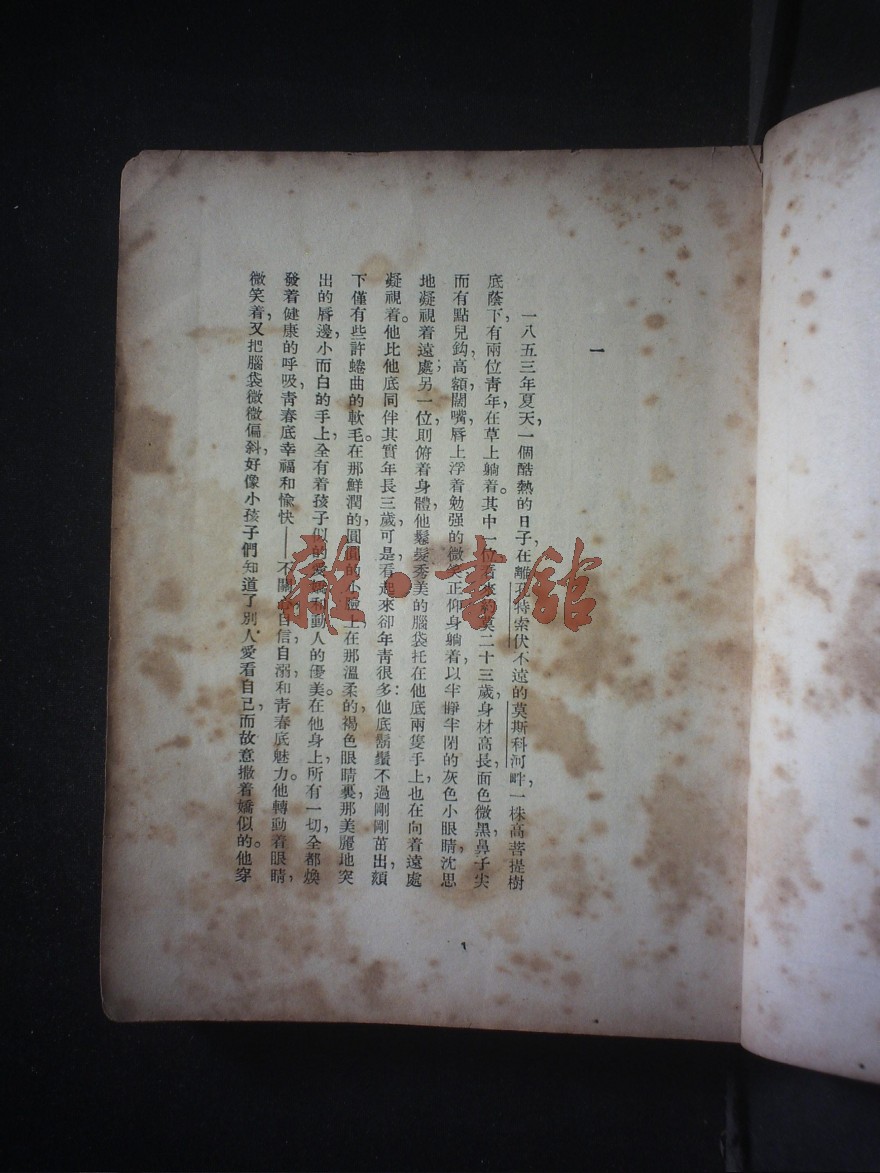 一
一八五三年夏天，一個酷熱的日子，在離孔特索伏不遠的莫斯科河畔，一株高菩提樹
底蔭下，有兩位青年在草上躺着。其中一位看來約莫二十三歲，身材高長，面色微黑，鼻子尖
而有點兒鈎，高額，闊嘴，唇上浮着勉强的微笑，正仰身躺着，以半睜半閉的灰色小眼睛沈思
地凝視着遠處；另一位，則俯着身體，他鬆髮秀美的腦袋托在他底兩隻手上，也在向着遠處
凝視着。他比他底同伴其實年長三歲，可是，看起來卻年靑很多：他底鬍鬚不過剛剛茁出，頦
下僅有些許蜷曲的軟毛。在那鮮潤的，圓圓的小臉上，在那溫柔的褐色眼睛裏，那美麗地突
出的唇邊，小而白的手上，全有着孩子似的愛嬌和動人的優美。在他身上，所有一切，全都煥
發着健康的呼吸，靑春底幸福和愉快——不關心，自信，自溺和靑春底魅力。他轉動着眼睛，
微笑着，又把腦袋微微偏斜，好像小孩子們知道了別人愛看自己，而故意撒着嬌似的。他穿
1
雜·書館